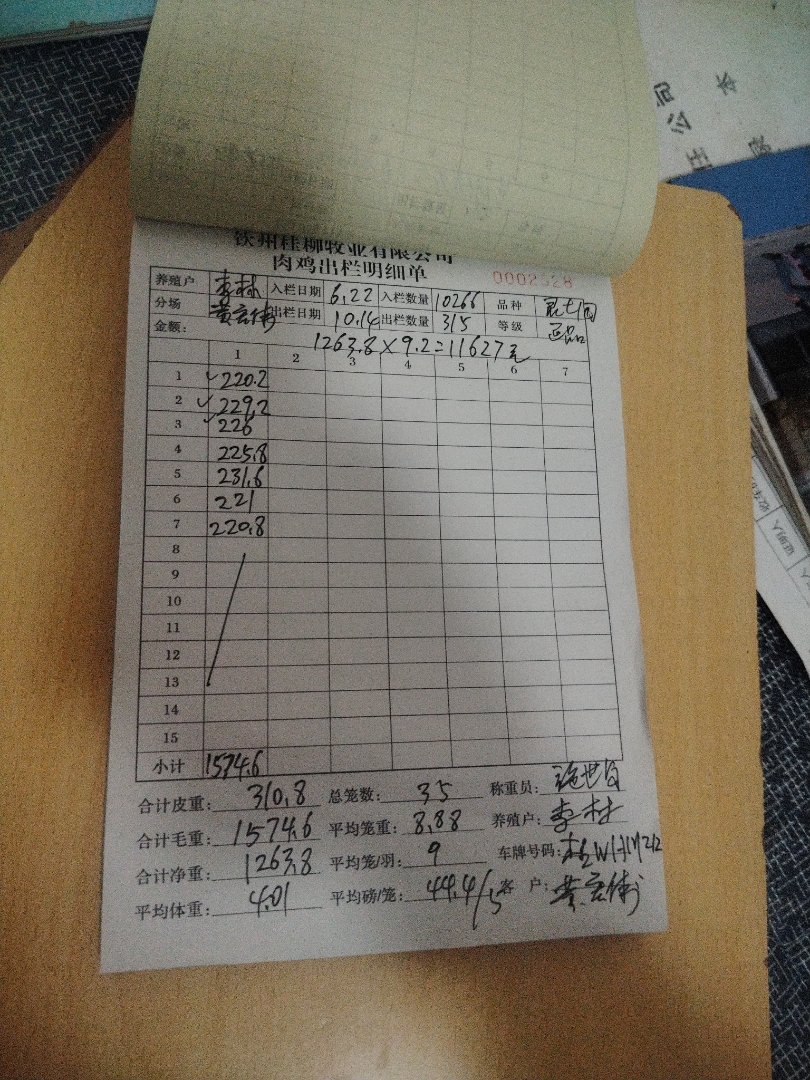 钦州桂柳牧业有限公司
肉鸡出栏明细单 0002528
养殖户 李林 入栏日期 6.22 入栏数量 10266 品种
分场 黄宏伟 出栏日期 10.14 出栏数量 315 等级 正品
金额： 1263.8×9.2=11627元
1 2 3 4 5 6 7
1 ✓220.2
2 ✓229.2
3 ✓226
4 225.8
5 231.6
6 221
7 220.8
8
9
10
11
12
13
14
15
小计 1574.6
合计皮重： 310.8 总笼数： 35 称重员：
合计毛重： 1574.6 平均笼重： 8.88 养殖户： 李林
合计净重： 1263.8 平均笼/羽： 9 车牌号码：
平均体重： 4.01 平均磅/笼： 44.4/5 客 户： 黄宏伟
司
公
本
证明人